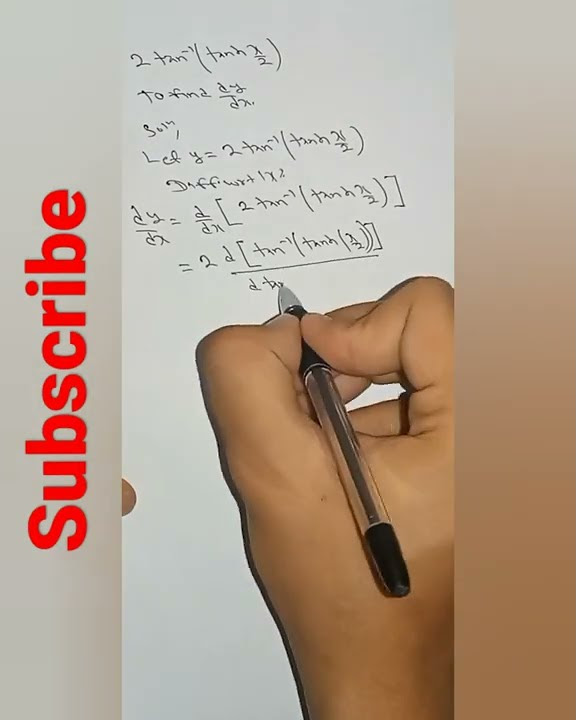 2 tan⁻¹(tanh x/2)
To find dy/dx.
Solⁿ,
Let y = 2 tan⁻¹(tanh x/2)
Diff w.r.t. x;
dy/dx = d/dx [2 tan⁻¹(tanh x/2)]
= 2 d [tan⁻¹(tanh(x/2))]
d tan
Subscribe